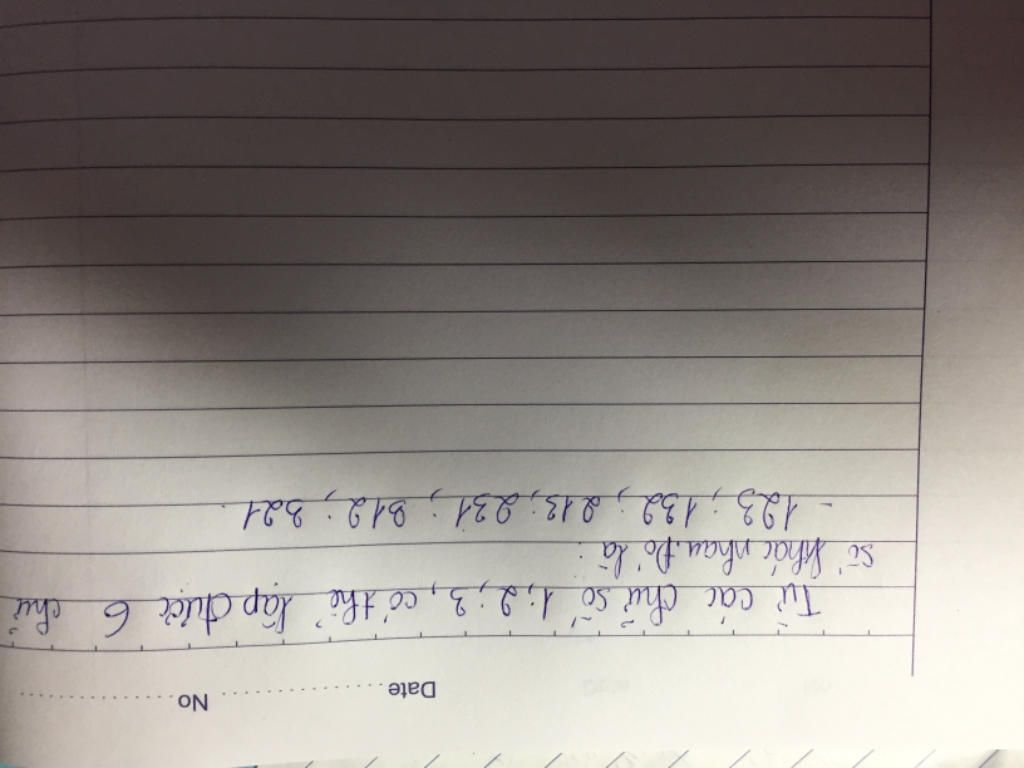 Date .................... No ....................
Từ các chữ số 1; 2; 3, có thể lập được 6 chữ
số khác nhau. Đó là :
- 123 ; 132 ; 213 ; 231 ; 312 ; 321